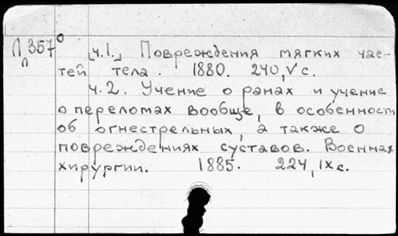 П 357⁰
п
[ч.1.] Повреждения мягких час-
тей тела. 1880. 240, V с.
ч.2. Учение о ранах и учение
о переломах вообще, в особенности
об огнестрельных, а также о
повреждениях суставов. Военная
хирургии. 1885. 224, IX с.